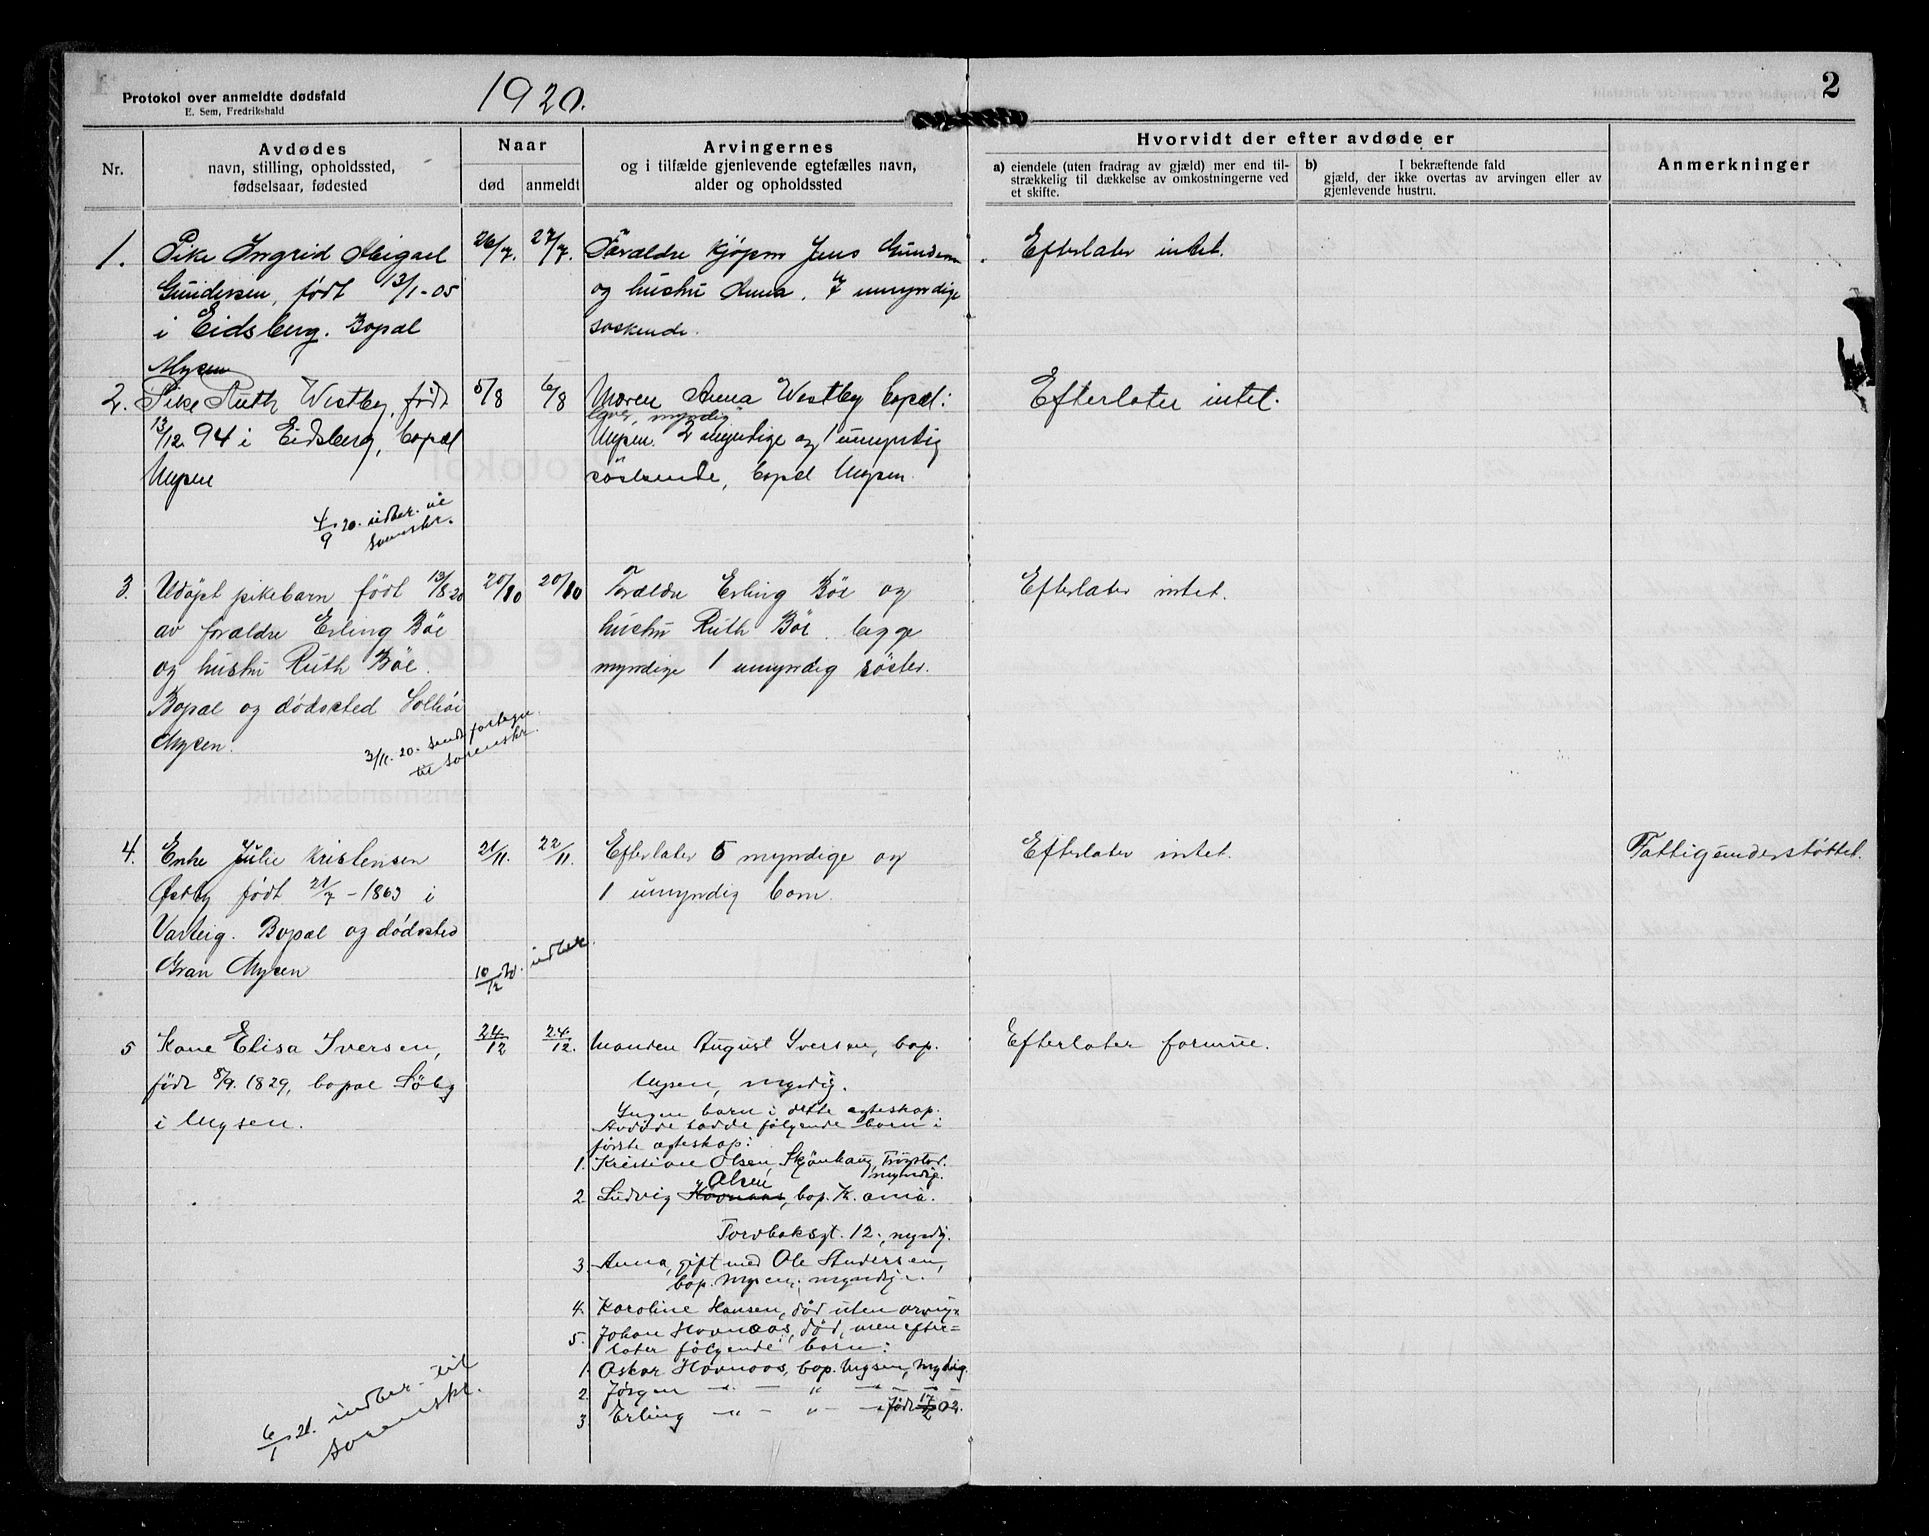 2
Protokol over anmeldte dødsfald
E. Sem, Fredrikshald
1920.
Nr.
Avdødes
navn, stilling, opholdssted,
fødselsaar, fødested
Naar
død
anmeldt
Arvingernes
og i tilfælde gjenlevende egtefælles navn,
alder og opholdssted
Hvorvidt der efter avdøde er
a) eiendele (uten fradrag av gjæld) mer end til-
strækkelig til dækkelse av omkostningerne ved
et skifte.
b) I bekræftende fald
gjæld, der ikke overtas av arvingen eller av
gjenlevende hustru.
Anmerkninger
1.
Pike Ingrid Abigael
Gundersen, født 13/1-05
i Eidsberg. Bopæl
Mysen
26/7.
27/7.
Forældre kjøpm Jens Gundersen
og hustru Anna. 7 umyndige
søskende.
Efterlater intet.
2.
Pike Ruth Westby, født
13/12.94 i Eidsberg, bopæl
Mysen
4/9 20. indber. til
sorenskr.
5/8
6/8
Moren Anna Westby bopæl:
lever, myndig
Mysen. 2 myndige og 1 umyndig
søskende, bopæl Mysen.
Efterlater intet.
3.
Udøpt pikebarn født 13/8 20
av forældre Erling Böe
og hustru Ruth Böe.
Bopæl og dødssted Solhöi
Mysen.
3/11. 20. sendt fortegn.
til sorenskr.
20/10
20/10
Forældre Erling Böe og
hustru Ruth Böe. begge
myndige 1 umyndig söster.
Efterlater intet.
4.
Enke Julie Kristensen
Østby født 21/7 - 1863 i
Varteig. Bopæl og dödssted
Gran Mysen
21/11.
22/11.
10/12 20. indber.
Efterlater 5 myndige og
1 umyndig barn.
Efterlater intet.
Fattigunderstöttet.
5
Kone Elisa Iversen,
født 8/9. 1829, bopæl Söby
i Mysen.
24/12
24/12.
Manden August Iversen, bop.
Mysen, myndig.
Ingen barn i dette egteskap.
Avdöde hadde fölgende barn i
förste egteskap:
1. Kristian Olsen, Skjönhaug, Trögstad.
myndig.
Olsen
2. Ludvig Hovnaas, bop. K.ania.
Torvbaksgt. 12., myndig.
3. Anna, gift med Ole Andersen,
bop. Mysen; myndig.
4. Karoline Hansen, död uten arving.
5. Johan Hovnaas, död, men efter=
later fölgende barn:
1. Oskar Hovnaas, bop. Mysen, myndig.
2. Jörgen — „ — „ — „ —
3. Erling — „ — „ — „ født 17/2 02.
Efterlater formue.
6/1 21. indber. til
sorenskr.